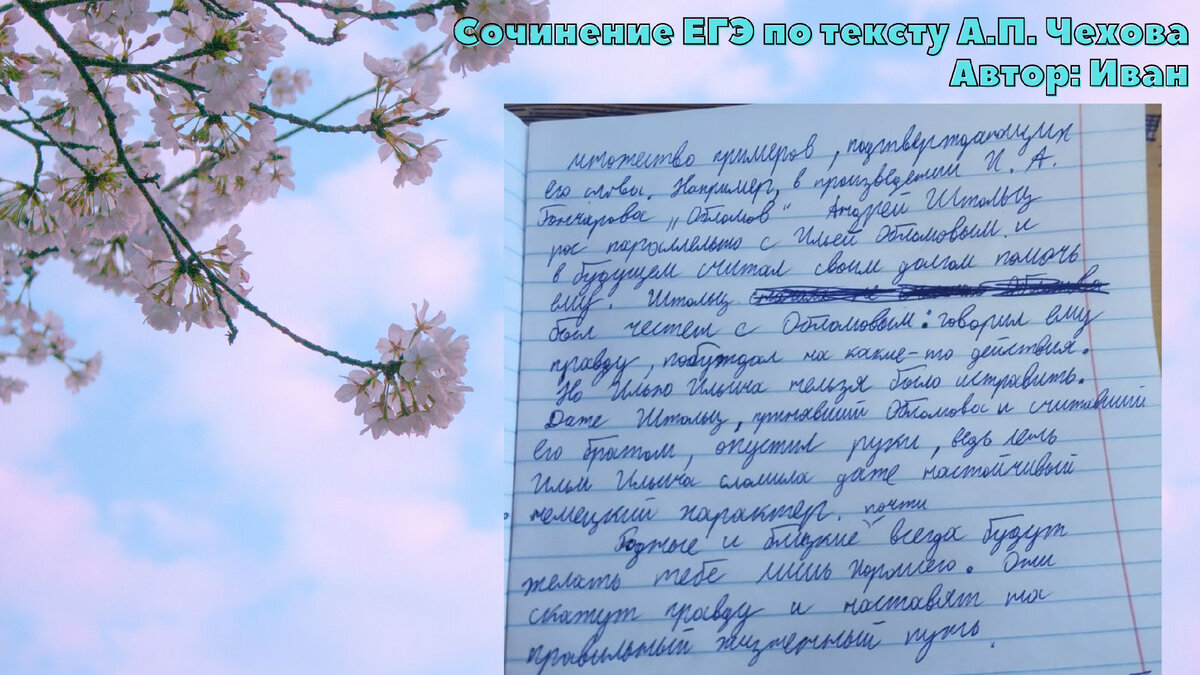 Сочинение ЕГЭ по тексту А.П. Чехова
Автор: Иван
множество примеров, подтверждающих
его словы. Например, в произведении И. А.
Гончарова „Обломов“ Андрей Штольц
рос параллельно с Ильёй Обломовым и
в будущем считал своим долгом помочь
ему. Штольц
был честен с Обломовым: говорил ему
правду, побуждал на какие-то действия.
Но Илью Ильича нельзя было исправить.
Даже Штольц, принявший Обломова и считавший
его братом, опустил руки, ведь лень
Ильи Ильича сломила даже настойчивый
немецкий характер.
почти
Родные и близкие всегда будут
желать тебе лишь хорошего. Они
скажут правду и наставят на
правильный жизненный путь.